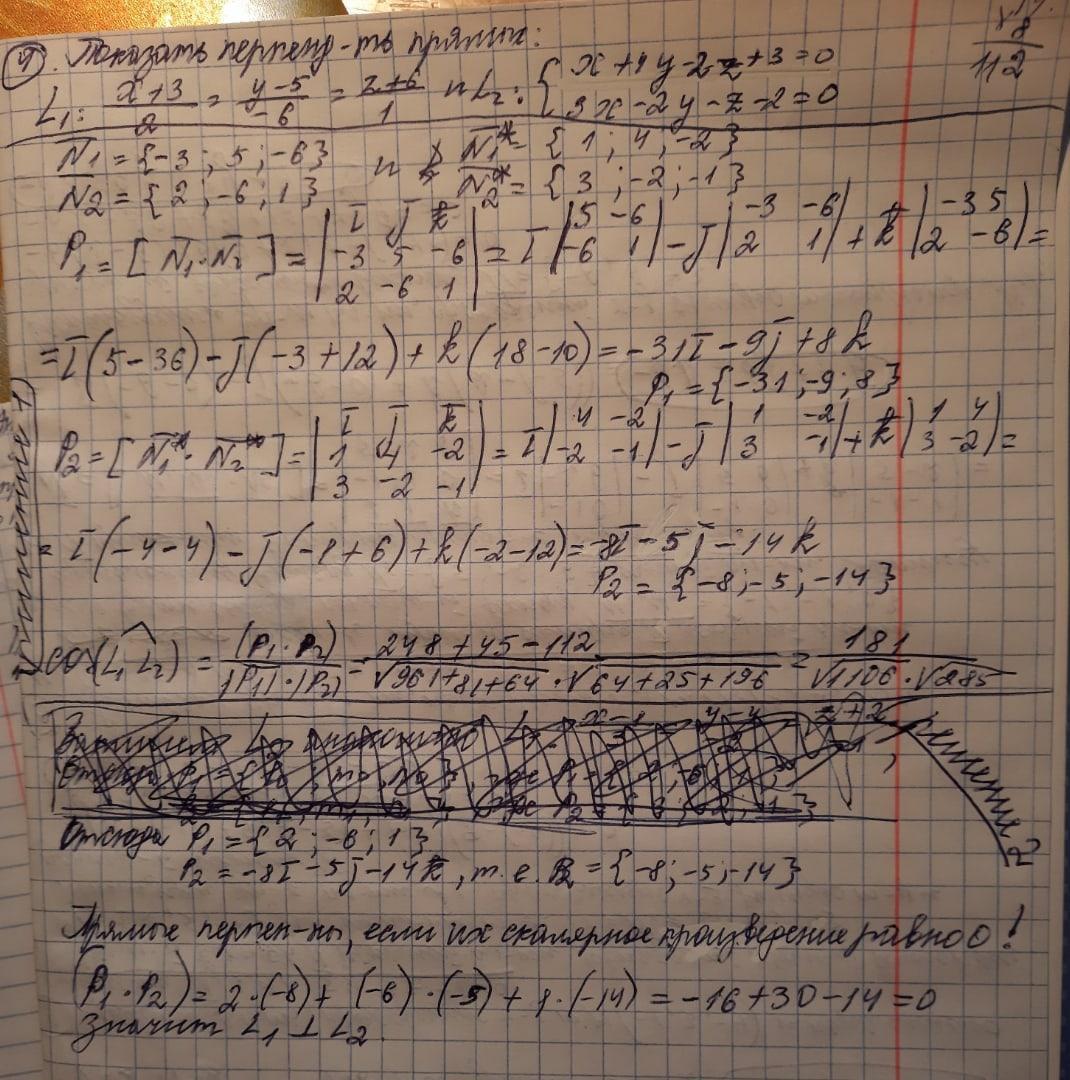 9. Показать перпенд-ть прямых:
L₁: (x+3)/2 = (y-5)/-6 = (z+6)/1 и L₂: { x+4y-2z+3=0
3x-2y-z-2=0
18
112
N̄1 = {-3; 5; -6} и N̄1* = {1; 4; -2}
N̄2 = {2; -6; 1} N̄2* = {3; -2; -1}
P₁ = [N̄1·N̄2] = | ī j̄ k̄ | -3 5 -6 | 2 -6 1 | = ī |5 -6| -6 1| - j̄ |-3 -6| 2 1| + k̄ |-3 5| 2 -6| =
= ī(5-36) - j̄(-3+12) + k̄(18-10) = -31ī - 9j̄ + 8k̄
P₁ = {-31; -9; 8}
P₂ = [N̄1*·N̄2*] = | ī j̄ k̄ | 1 4 -2 | 3 -2 -1 | = ī |4 -2| -2 -1| - j̄ |1 -2| 3 -1| + k̄ |1 4| 3 -2| =
= ī(-4-4) - j̄(-1+6) + k̄(-2-12) = -8ī - 5j̄ - 14k̄
P₂ = {-8; -5; -14}
Решение 1
cos(L₁ L₂) = (P₁·P₂)/(|P₁|·|P₂|) = (248+45-112)/(√961+81+64 · √64+25+196) = 181/(√1106 · √285)
Решение 2
Отсюда P₁ = {2; -6; 1}
P₂ = -8ī - 5j̄ - 14k̄, т.е. P₂ = {-8; -5; -14}
Прямые перпен-ны, если их скалярное произведение равно 0!
(P₁·P₂) = 2·(-8) + (-6)·(-5) + 1·(-14) = -16+30-14 = 0
Значит L₁ ⊥ L₂.